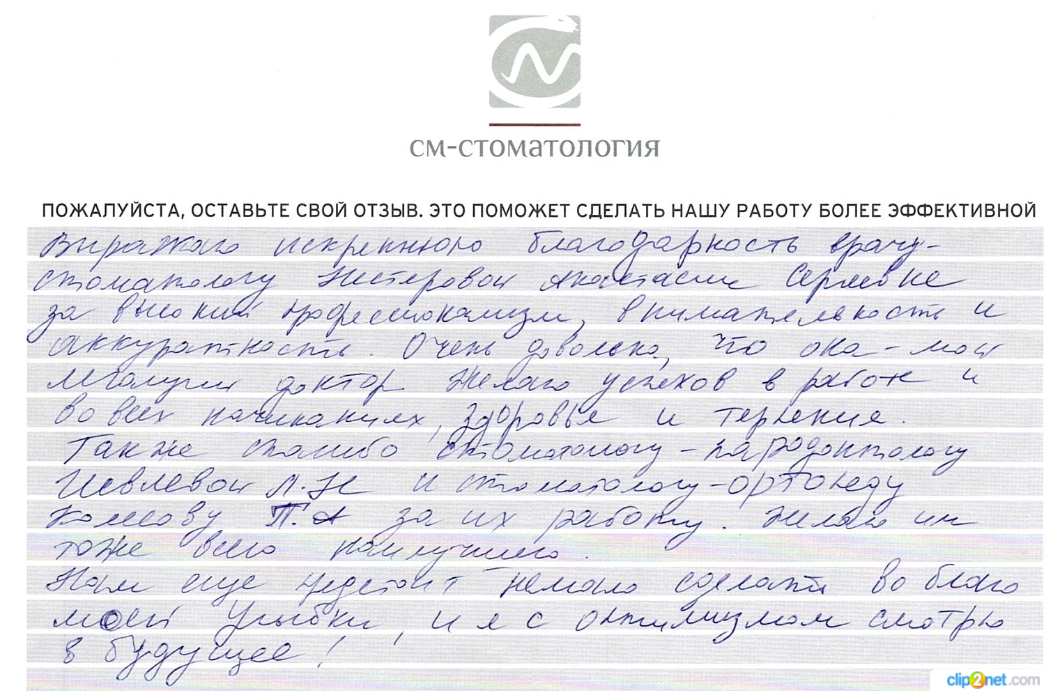 СМ-СТОМАТОЛОГИЯ
ПОЖАЛУЙСТА, ОСТАВЬТЕ СВОЙ ОТЗЫВ. ЭТО ПОМОЖЕТ СДЕЛАТЬ НАШУ РАБОТУ БОЛЕЕ ЭФФЕКТИВНОЙ
Выражаю искреннюю благодарность врачу-
стоматологу Нестеровой Анастасии Сергеевне
за высокий профессионализм, внимательность и
аккуратность. Очень довольна, что она - мой
лечащий доктор. Желаю успехов в работе и
во всех начинаниях, здоровья и терпения.
Также спасибо стоматологу-пародонтологу
Иевлевой Л.Н и стоматологу-ортопеду
Колесову П.А за их работу. Желаю им
тоже всего наилучшего.
Нам еще предстоит немало сделать во благо
моей улыбки, и я с оптимизмом смотрю
в будущее!
clip2net.com